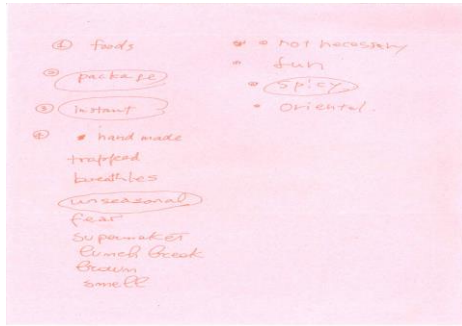 ① foods
② package
③ instant
④ • hand made
trapped
breathles
unseasonal
fear
supermaket
lunch break
brown
smell
• not necessary
• fun
• spicy
• oriental.